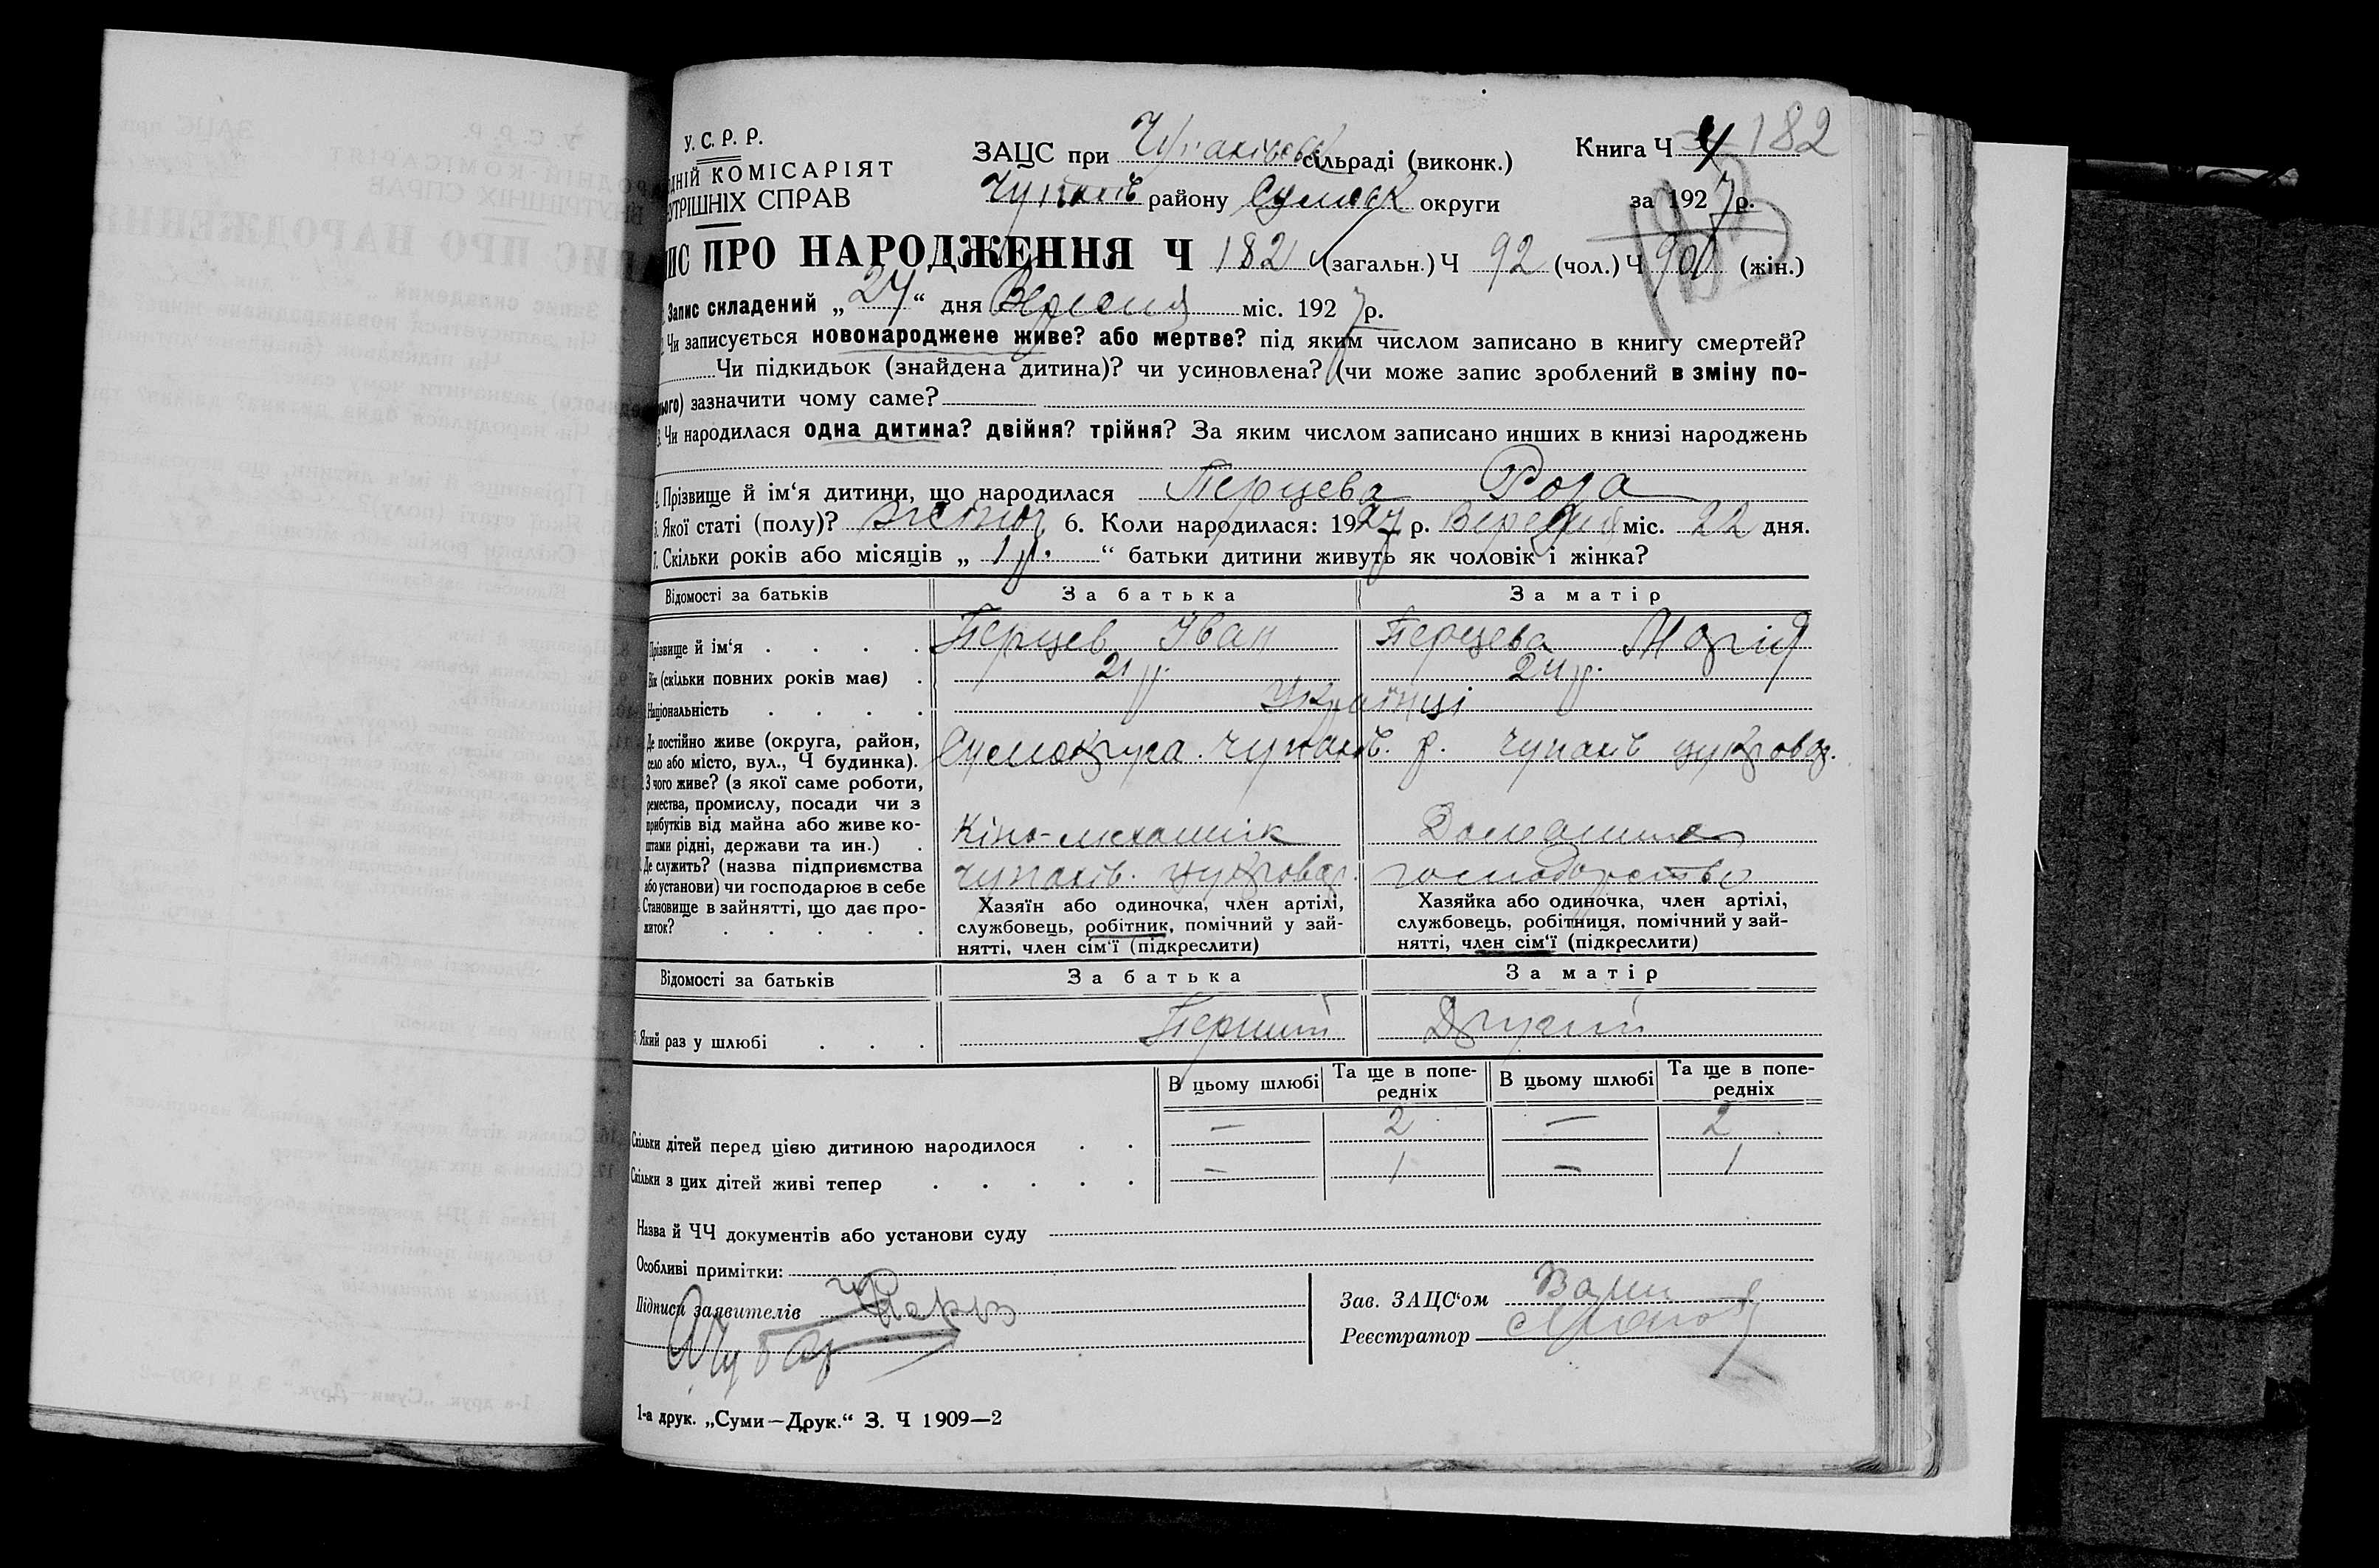 У.С.Р.Р.
ДНІЙ КОМІСАРІЯТ
УТРІШНІХ СПРАВ
ЗАЦС при сільраді (виконк.)
Чупахів району Сумськ округи
Книга Ч 4 182
за 1927 р.
183
ИС ПРО НАРОДЖЕННЯ Ч 182 (загальн.) Ч 92 (чол.) Ч 90 (жін.)
Запис складений „27“ дня Вересня міс. 1927 р.
Чи записується новонароджене живе? або мертве? під яким числом записано в книгу смертей?
Чи підкидьок (знайдена дитина)? чи усиновлена? (чи може запис зроблений в зміну по-
ього) зазначити чому саме?
3. Чи народилася одна дитина? двійня? трійня? За яким числом записано инших в книзі народжень
4. Прізвище й ім‘я дитини, що народилася Перцева Роза
5. Якої статі (полу)? жіноч 6. Коли народилася: 1927 р. Вересня міс. 22 дня.
7. Скільки років або місяців „ 1 р. “ батьки дитини живуть як чоловік і жінка?
Відомості за батьків За батька За матір
Прізвище й ім‘я Перцев Іван Перцева Марія
Вік (скільки повних років має) 21 р. 24 р.
Національність Українці
Де постійно живе (округа, район,
село або місто, вул., Ч будинка). Сумокруга. Чупахів. р. Чупахів цукровар.
З чого живе? (з якої саме роботи,
ремества, промислу, посади чи з
прибутків від майна або живе ко-
штами рідні, держави та ин.) Кіно-механік Домашнє
Де служить? (назва підприємства
або установи) чи господарює в себе Чупахів. цукровар. господарство
Становище в зайнятті, що дає про-
житок?
Хазяїн або одиночка, член артілі,
службовець, робітник, помічний у зай-
нятті, член сім‘ї (підкреслити)
Хазяйка або одиночка, член артілі,
службовець, робітниця, помічний у зай-
нятті, член сім‘ї (підкреслити)
Відомості за батьків За батька За матір
Який раз у шлюбі Перший Другий
В цьому шлюбі Та ще в попе-редніх В цьому шлюбі Та ще в попе-редніх
Скільки дітей перед цією дитиною народилося — 2 — 2
Скільки з цих дітей живі тепер — 1 — 1
Назва й ЧЧ документів або установи суду
Особливі примітки:
Підписи заявителів
Зав. ЗАЦС‘ом
Реєстратор
1-а друк. „Суми—Друк.“ З. Ч 1909—2